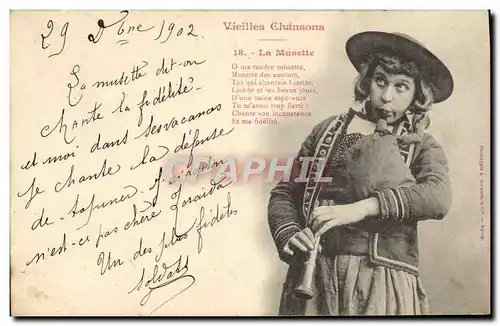 29 Dbre 1902.
La musette dit-on
chante la fidélité -
et moi dans ses vacances
je chante la défense
de
n'est-ci pas chère Zoraïda
Un des plus fidèles
soldats
Vieilles Chansons
18. - La Musette
O ma tendre musette,
Musette des amours,
Toi qui chantais Lisette,
Lisette et les beaux jours,
D'une vaine espérance
Tu m'avais trop flatté :
Chante son inconstance
Et ma fidélité.
CARTE-PHILA